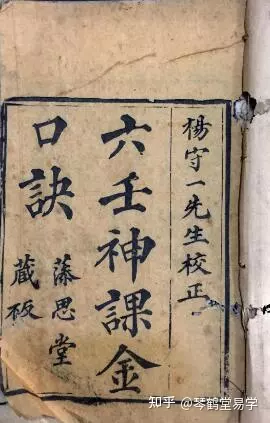 楊守一先生校正
六壬神課金
口訣
藻思堂
蔵板
知乎 @琴鹤堂易学